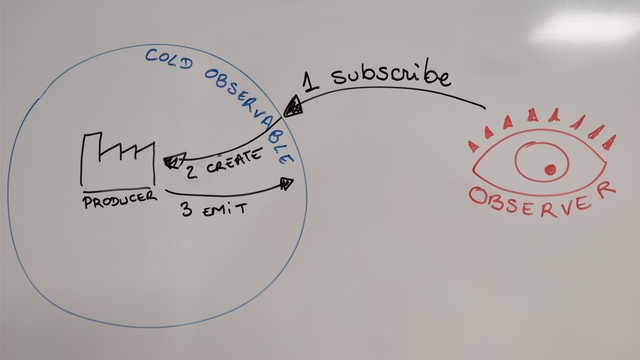 COLD OBSERVABLE
1 subscribe
2 CREATE
PRODUCER
3 EMIT
OBSERVER